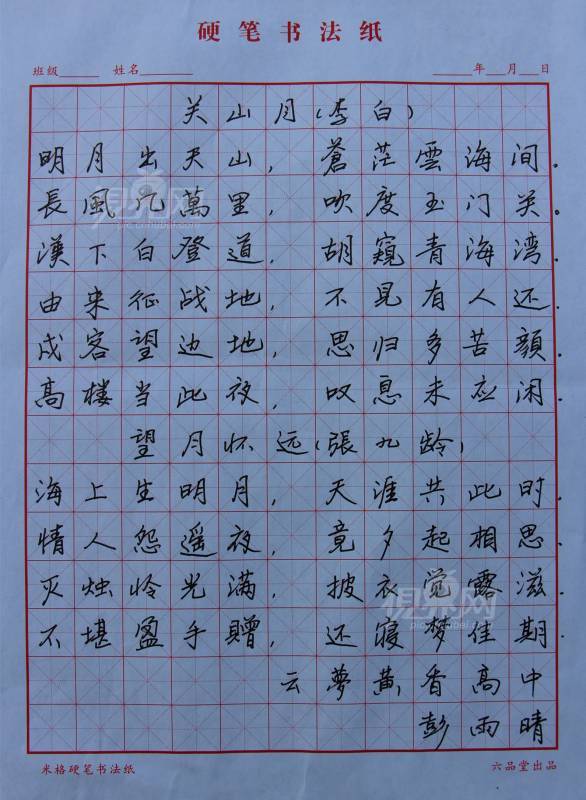 硬笔书法纸
班级 姓名 年 月 日
关山月(李白)
明月出天山，蒼茫雲海间.
長風几萬里，吹度玉门关.
漢下白登道，胡窺青海湾.
由来征战地，不見有人还.
戍客望边地，思归多苦顔.
高楼当此夜，叹息未应闲.
望月怀远(張九龄)
海上生明月，天涯共此时.
情人怨遥夜，竟夕起相思.
灭烛怜光满，披衣觉露滋.
不堪盈手贈，还寝梦佳期.
云夢黄香高中
彭雨晴
米格硬笔书法纸 六品堂出品